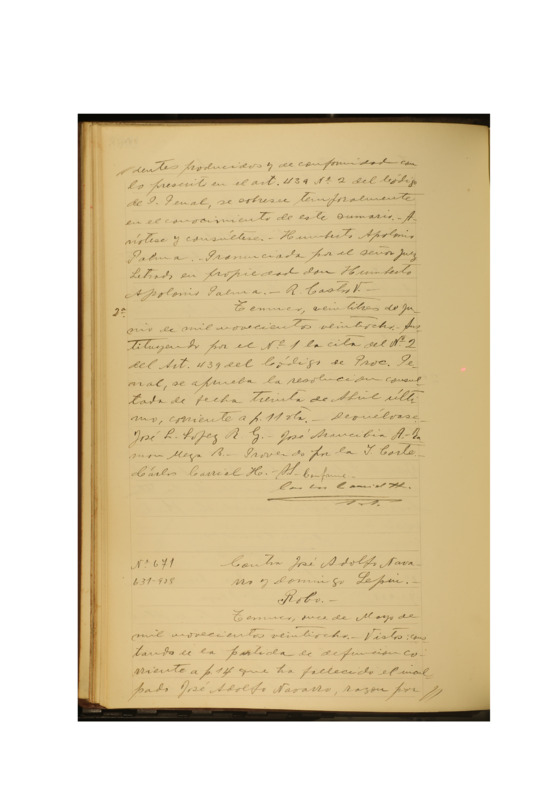 dentes producidos y de conformidad con
lo prescrito en el art. 439 Nº 2 del Código
de P. Penal, se sobresee temporalmente
en el conocimiento de este sumario.- A-
nótese y consúltese.- Humberto Apolonio
Palma.- Pronunciada por el señor Juez
Letrado en propiedad don Humberto
Apolonio Palma.- R. Castro V.-
2ª Temuco, veintitres de Ju-
nio de mil novecientos veintiocho. Sus-
tituyendo por el Nº 1 la cita del Nº 2
del Art. 439 del Código de Proc. Pe-
nal, se aprueba la resolución consul-
tada de fecha treinta de Abril últi-
mo, corriente a f. 11 vta.- Devuélvase.-
José L. Lopez R G.- José Arancibia A.- Ra-
mon Meza R.- Proveido por la I. Corte-
Cárlos Carreal H.-
Nº 671 Contra José Adolfo Nava-
631-928 rro y Domingo Lepin.-
Robo.-
Temuco, once de Mayo de
mil novecientos veintiocho.- Vistos: cons
tando de la partida de defuncion co-
rriente a f 14 que ha fallecido el incul
pado José Adolfo Navarro, razon por